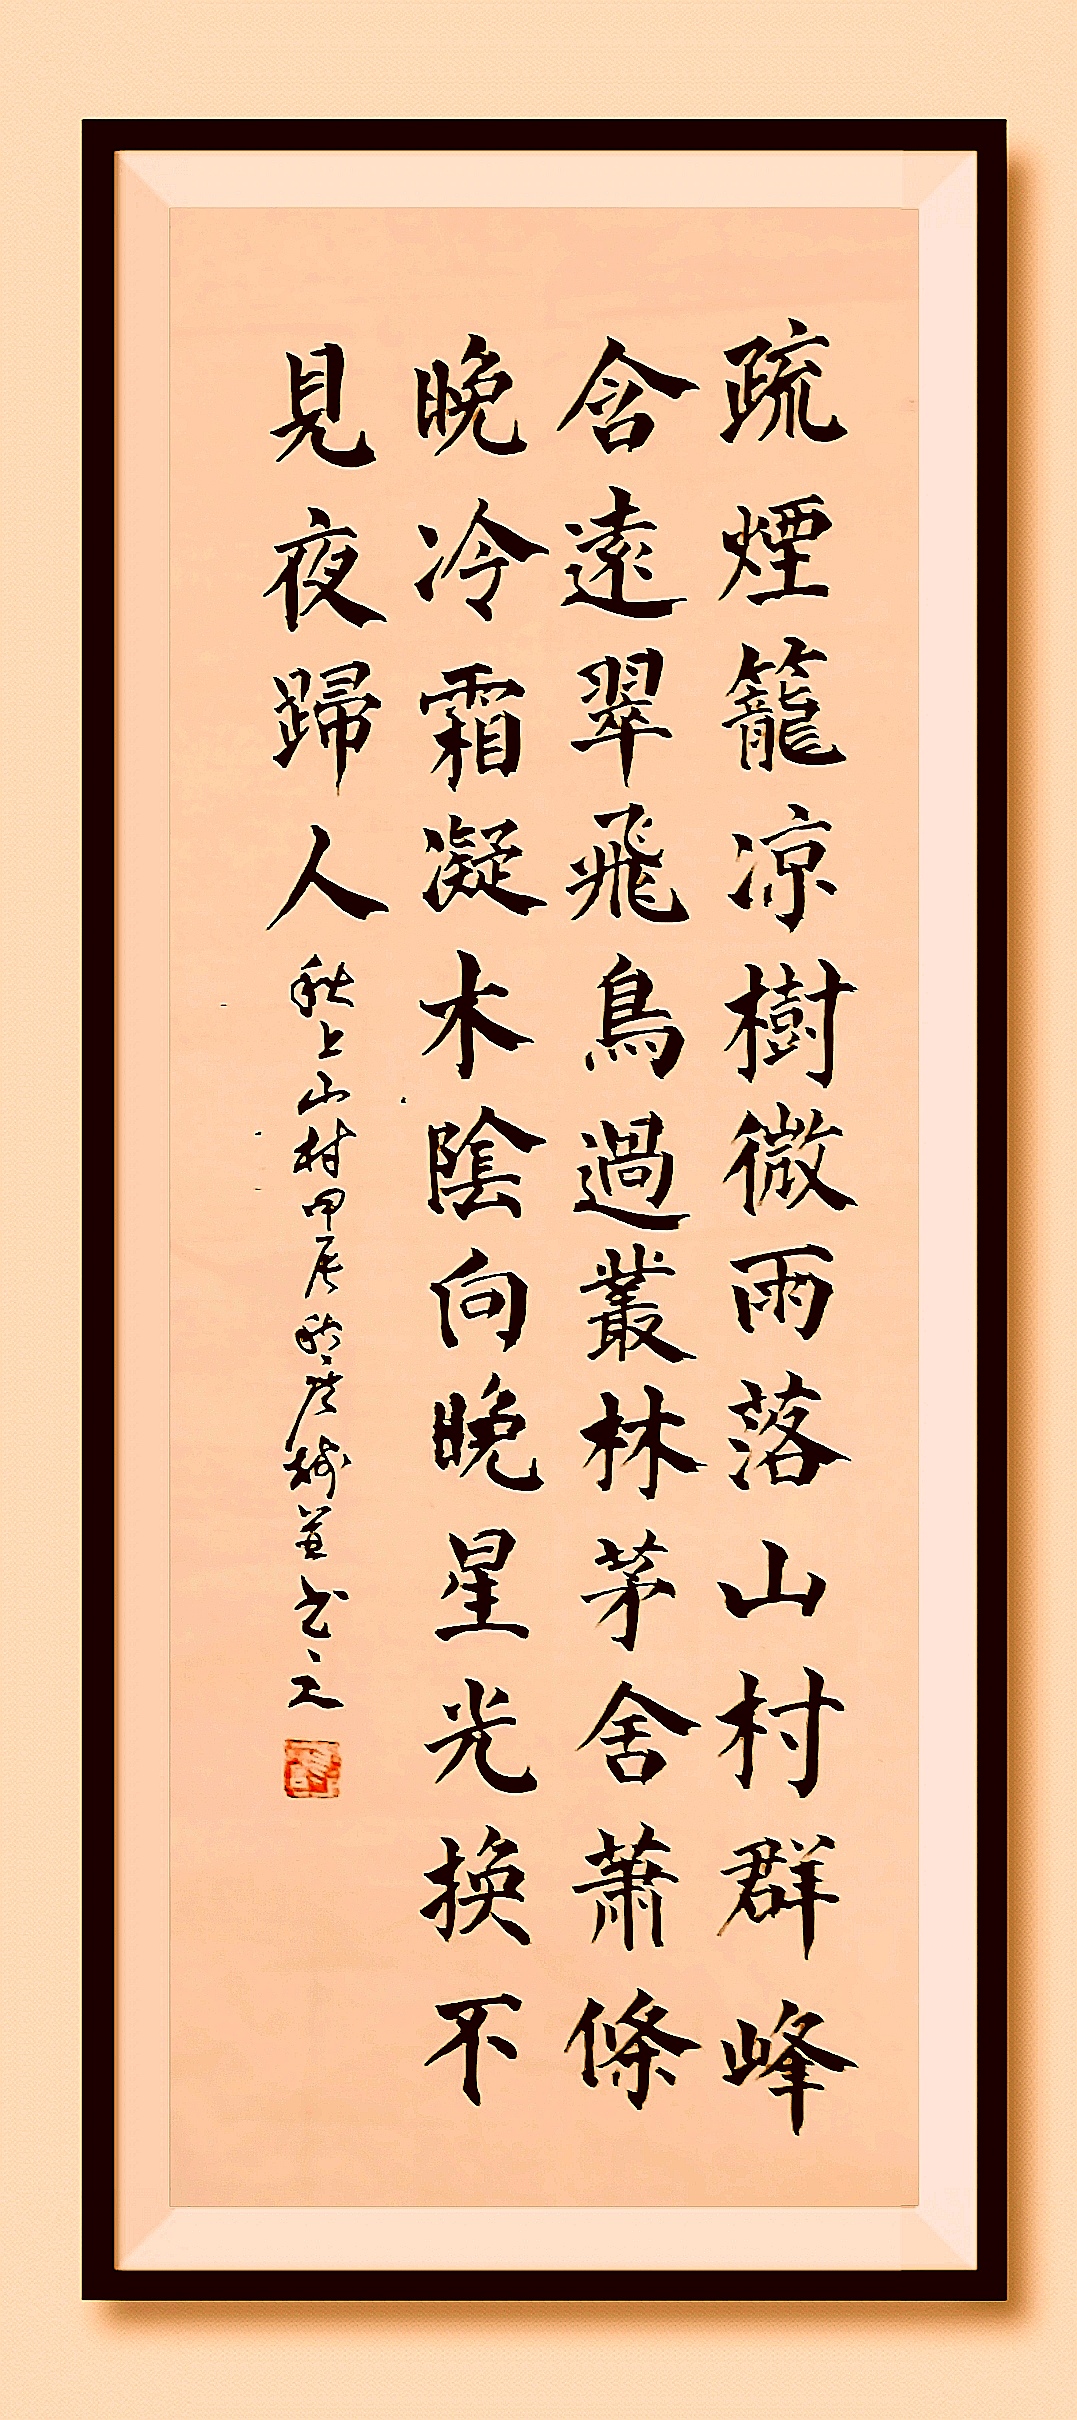 疏煙籠凉樹微雨落山村群峰
含遠翠飛鳥過叢林茅舍蕭條
晚冷霜凝木陰向晚星光換不
見夜歸人 秋上山村甲辰秋並书之